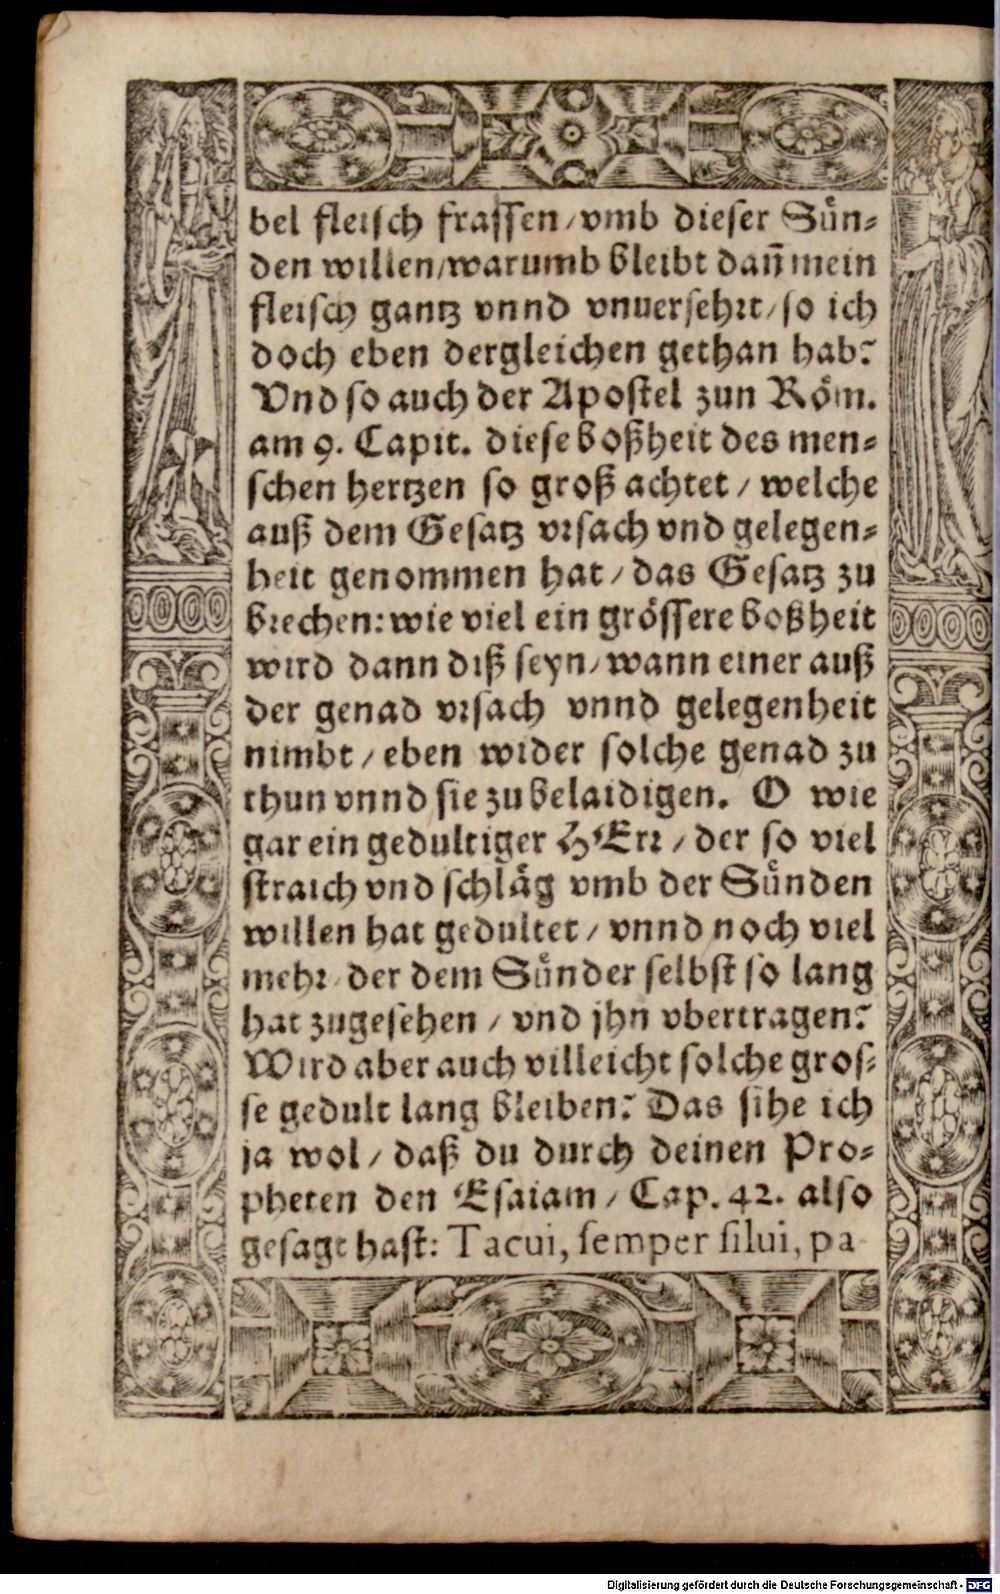 bel fleisch frassen/vmb dieser Sün-
den willen/warumb bleibt dañ mein
fleisch gantz vnnd vnuersehrt/so ich
doch eben dergleichen gethan hab?
Vnd so auch der Apostel zun Röm.
am 9. Capit. diese boßheit des men-
schen hertzen so groß achtet/welche
auß dem Gesatz vrsach vnd gelegen-
heit genommen hat/das Gesatz zu
brechen: wie viel ein grössere boßheit
wird dann diß seyn/wann einer auß
der genad vrsach vnnd gelegenheit
nimbt/eben wider solche genad zu
thun vnnd sie zu belaidigen. O wie
gar ein gedultiger HErr/der so viel
straich vnd schläg vmb der Sünden
willen hat gedultet/vnnd noch viel
mehr/der dem Sünder selbst so lang
hat zugesehen/vnd jhn vbertragen?
Wird aber auch villeicht solche gros-
se gedult lang bleiben? Das sihe ich
ja wol/daß du durch deinen Pro-
pheten den Esaiam/Cap. 42. also
gesagt hast: Tacui, semper silui, pa-
Digitalisierung gefördert durch die Deutsche Forschungsgemeinschaft - DFG